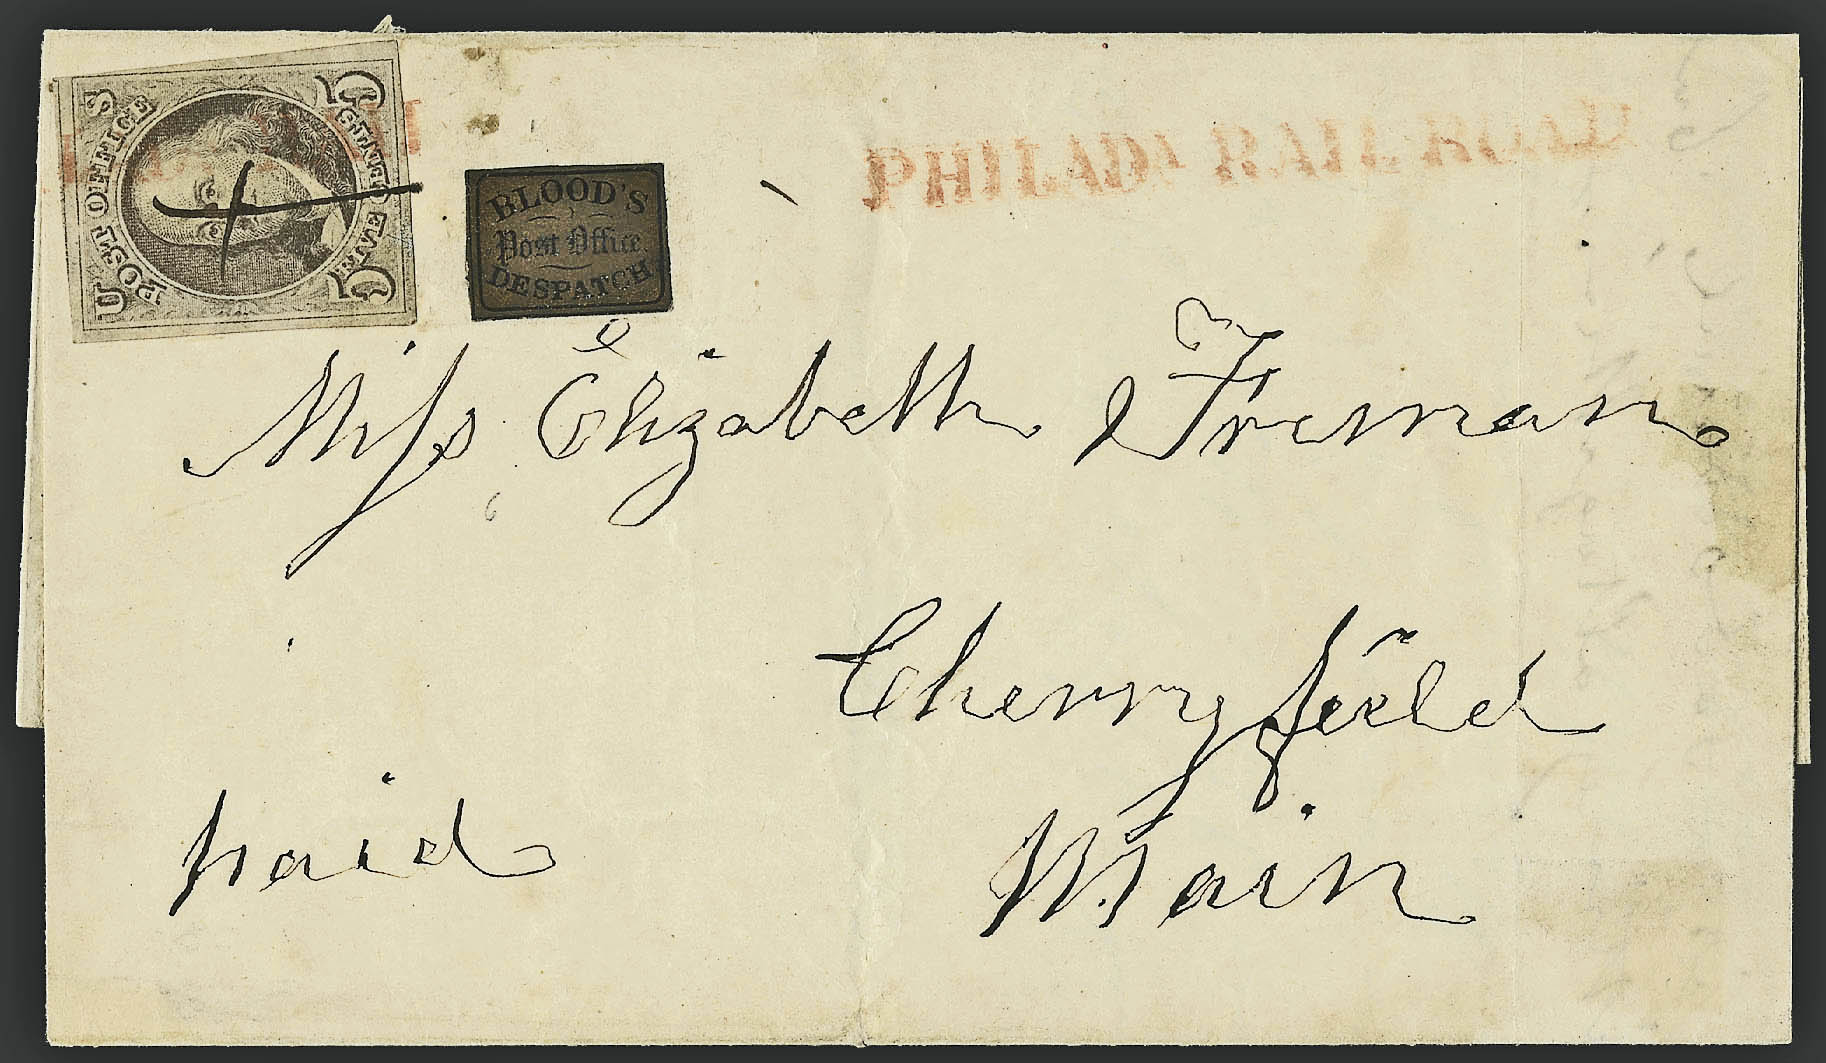 POST OFFICE
U S
FIVE CENTS
5 5
BLOOD'S
Post Office
DESPATCH
PHILADA RAIL ROAD
Miss Elizabeth Freman
Cherryfield
Main
paid